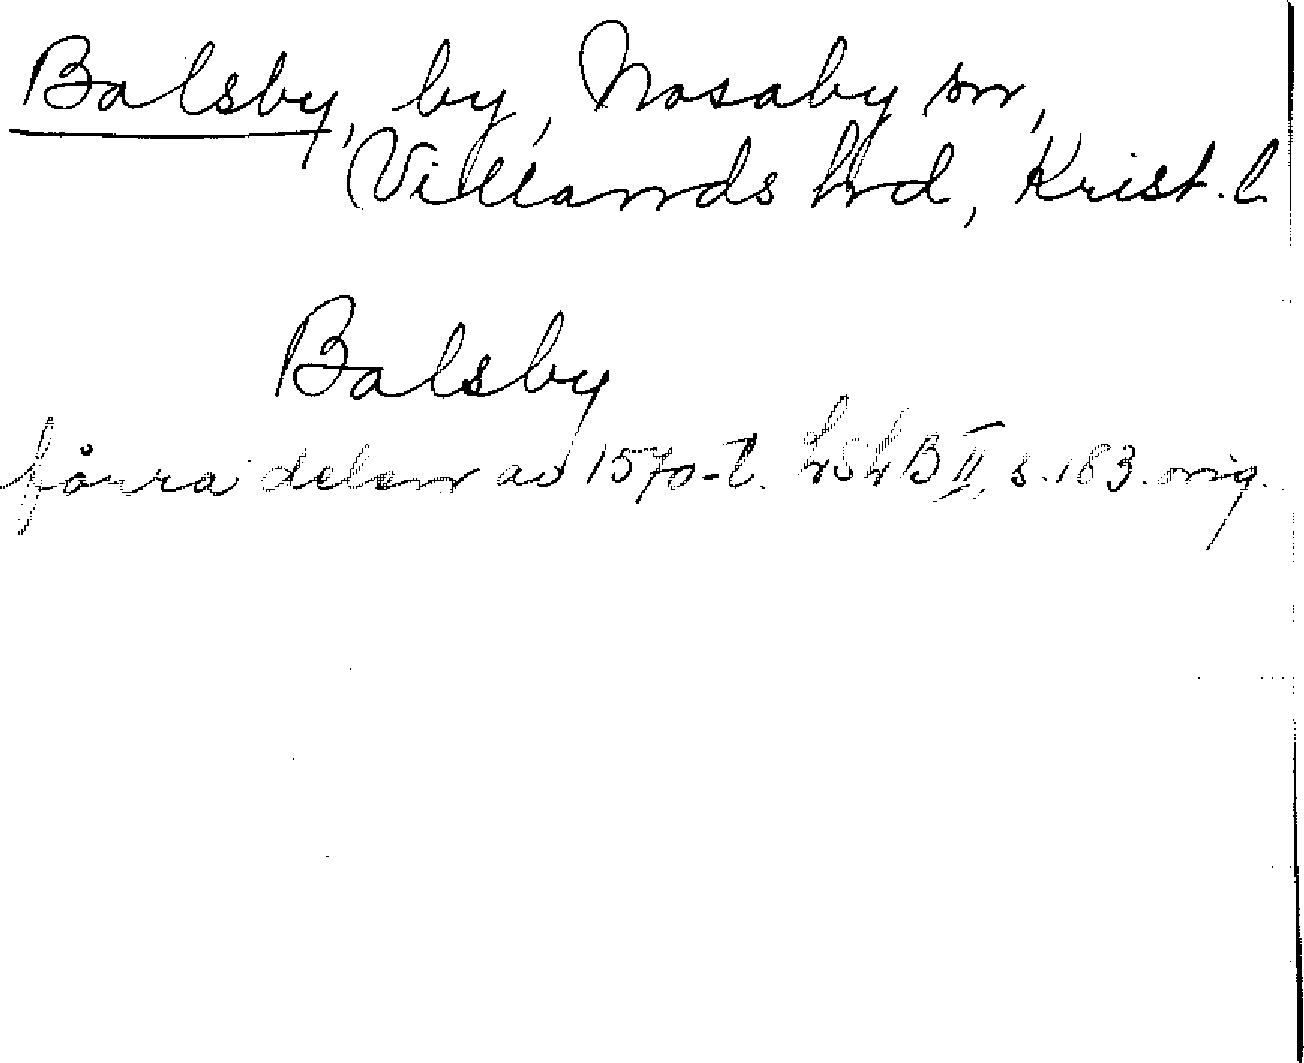 Balsby, by, Nosaby sn,
Villands hrd, Krist. l.
Balsby
förra delen av 1570-t. LSL B II, s. 183. orig.